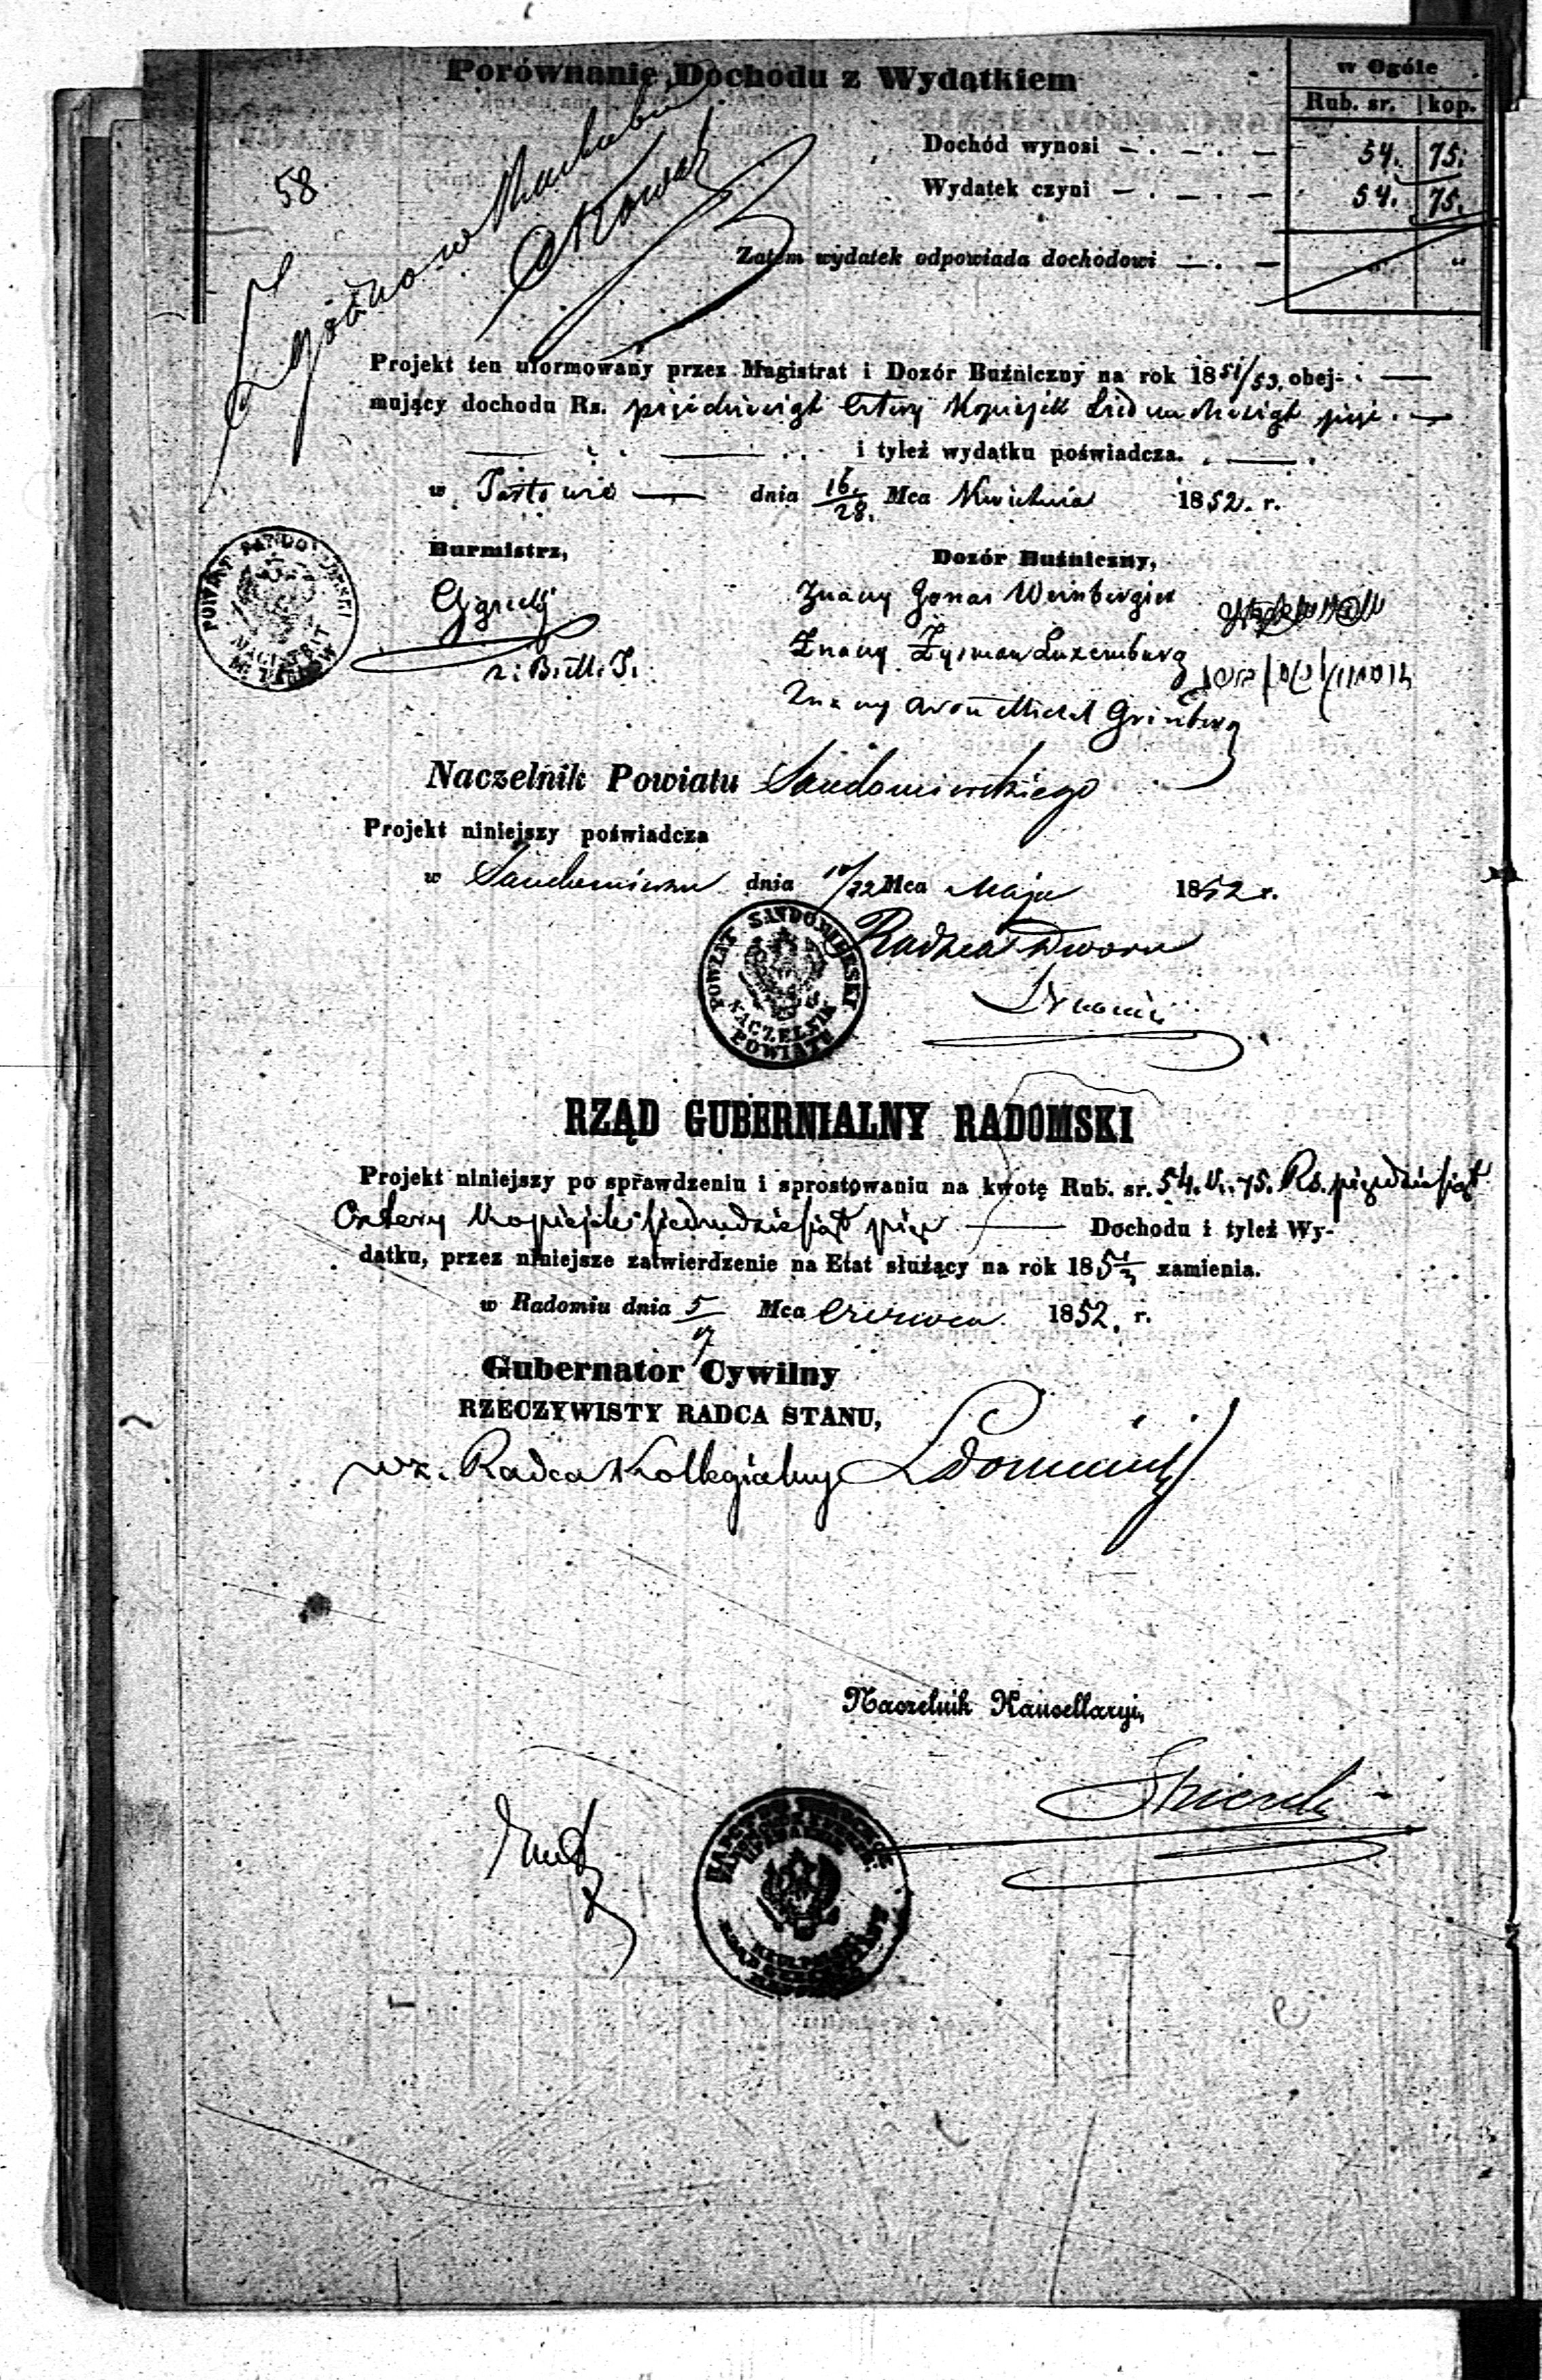 Porównanie Dochodu z Wydatkiem
w Ogóle
Rub. sr. kop.
58.
Dochód wynosi — . — . — 54. 75.
Wydatek czyni — . — . — 54. 75.
Zatem wydatek odpowiada dochodowi — . — „ „
Projekt ten uformowany przez Magistrat i Dozór Buźniczny na rok 1851/53. obej-
mujący dochodu Rs. pięćdziesiąt cztery kopiejek siedmdziesiąt pięć. —
i tyleż wydatku poświadcza.
w dnia 16/28. Mca Kwietnia 1852. r.
Burmistrz,
Dozór Buźniczny,
Znany Jonas Weinbergier
Znany Zysman Luxemburg
Znany Aron Michel Grinberg
POWIAT SANDOMIERSKI
MAGISTRAT
Naczelnik Powiatu Sandomierskiego
Projekt niniejszy poświadcza
w Sandomierzu dnia 10/22 Mca Maja 1852 r.
Radzca Dworu
POWIAT SANDOMIERSKI
NACZELNIK
POWIATU
RZĄD GUBERNIALNY RADOMSKI
Projekt niniejszy po sprawdzeniu i sprostowaniu na kwotę Rub. sr. 54. k. 75. Rs. pięćdziesiąt
cztery kopiejek siedmdziesiąt pięć — Dochodu i tyleż Wy-
datku, przez niniejsze zatwierdzenie na Etat służący na rok 1851/3 zamienia.
w Radomiu dnia 5/17 Mca Czerwca 1852. r.
Gubernator Cywilny
RZECZYWISTY RADCA STANU,
wz. Radca Kollegialny
Naczelnik Kancellaryi,